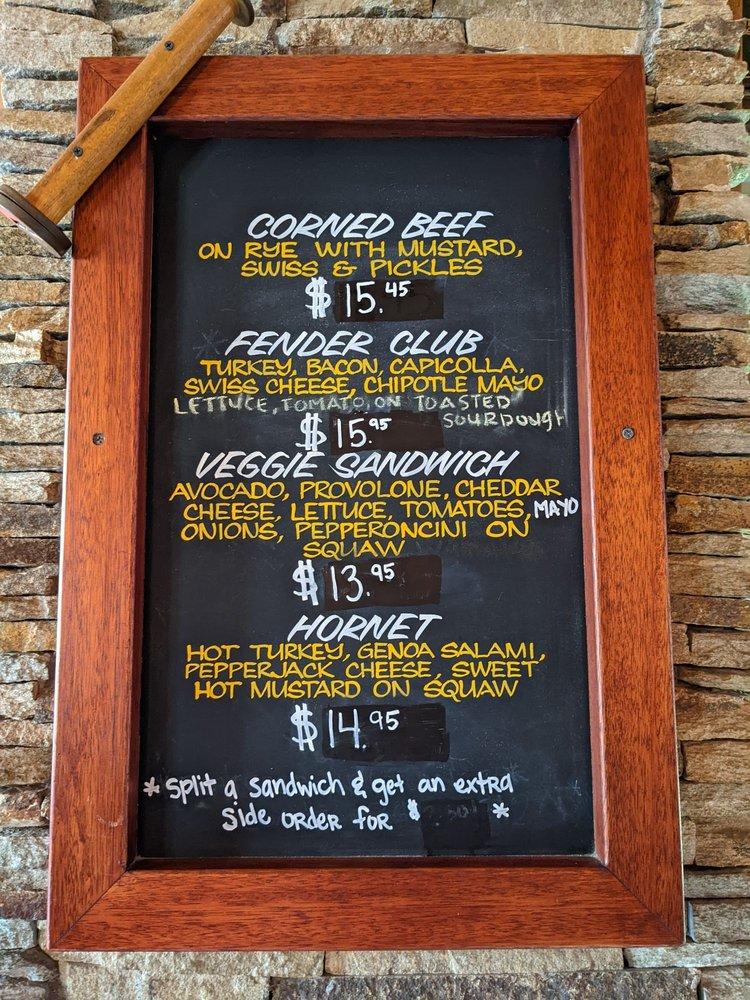 CORNED BEEF
ON RYE WITH MUSTARD,
SWISS & PICKLES
$15.45
FENDER CLUB
TURKEY, BACON, CAPICOLLA,
SWISS CHEESE, CHIPOTLE MAYO
LETTUCE, TOMATO, ON TOASTED
SOURDOUGH
$15.95
VEGGIE SANDWICH
AVOCADO, PROVOLONE, CHEDDAR
CHEESE, LETTUCE, TOMATOES, MAYO
ONIONS, PEPPERONCINI ON
SQUAW
$13.95
HORNET
HOT TURKEY, GENOA SALAMI,
PEPPERJACK CHEESE, SWEET
HOT MUSTARD ON SQUAW
$14.95
* Split a sandwich & get an extra
side order for $ *